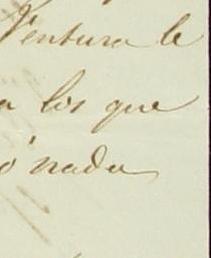 Ventura le
a los que
ó nada